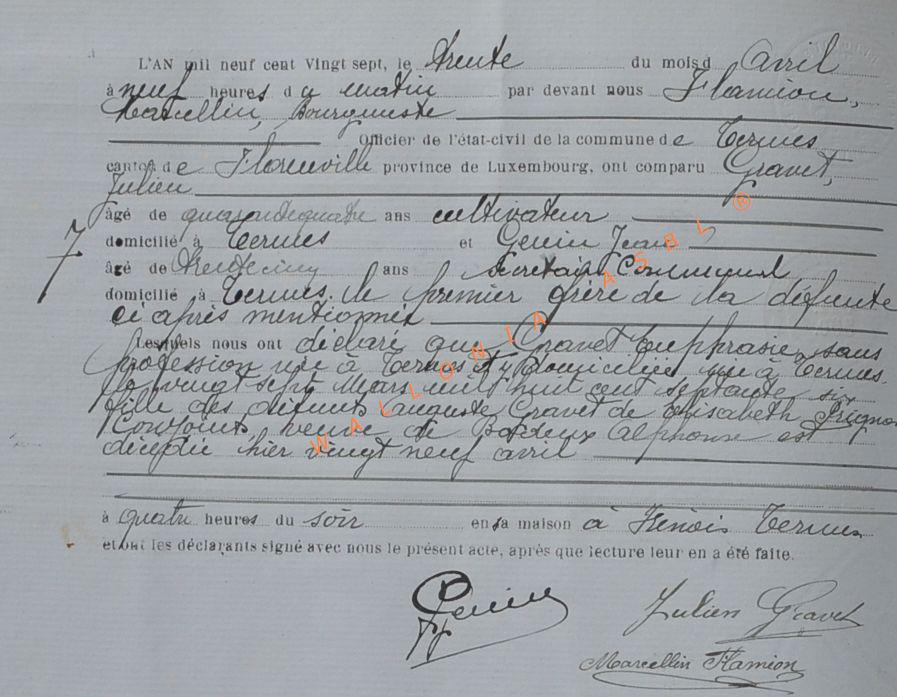 L'AN mil neuf cent Vingt sept, le trente du mois d avril
à neuf heures du matin par devant nous Flamion,
Marcellin, Bourgmestre
Officier de l'état-civil de la commune de Termes
canton de Florenville province de Luxembourg, ont comparu Gravet,
Julien
âgé de quarantequatre ans cultivateur
domicilié à Termes et Genin Jean
7
âgé de trentecinq ans Secrétaire Communal
domicilié à Termes. le premier frère de la défunte
ci après mentionnée
Lesquels nous ont déclaré que Gravet Euphrasie, sans
profession née à Termes et y domiciliée née à Termes
le vingt sept Mars mil huit cent septante six
fille des défunts Auguste Gravet et Elisabeth
Conjoints veuve de Alphonse est
décédée hier vingt neuf avril
à quatre heures du soir en sa maison à Frenois Termes
et ont les déclarants signé avec nous le présent acte, après que lecture leur en a été faite.
Genin
Julien Gravet
Marcellin Flamion
WALLONIA ASBL ®